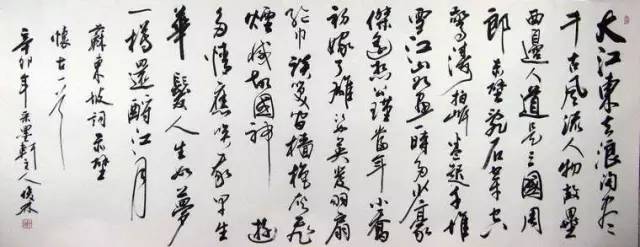 大江東去浪淘尽
千古風流人物故壘
西邊人道是三國周
郎赤壁乱石穿空
驚濤拍岸卷起千堆
雪江山如画一時多少豪
傑遥想公瑾當年小喬
初嫁了雄姿英发羽扇
纶巾談笑间檣櫓灰飛
煙滅故國神遊
多情應笑我早生
華髮人生如夢
一樽還酹江月
蘇東坡詞赤壁
懷古一首
辛卯年墨軒主人